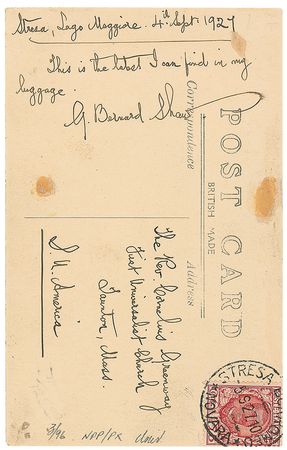 Stresa, Lago Maggiore. 4th Sept. 1927
This is the latest I can find in my
luggage.
G. Bernard Shaw
POST CARD
BRITISH MADE
Correspondence
Address
The Rev. Cornelius Greenway
First Universalist Church
Taunton, Mass.
U.S. America
STRESA
3/96 NPP/PX